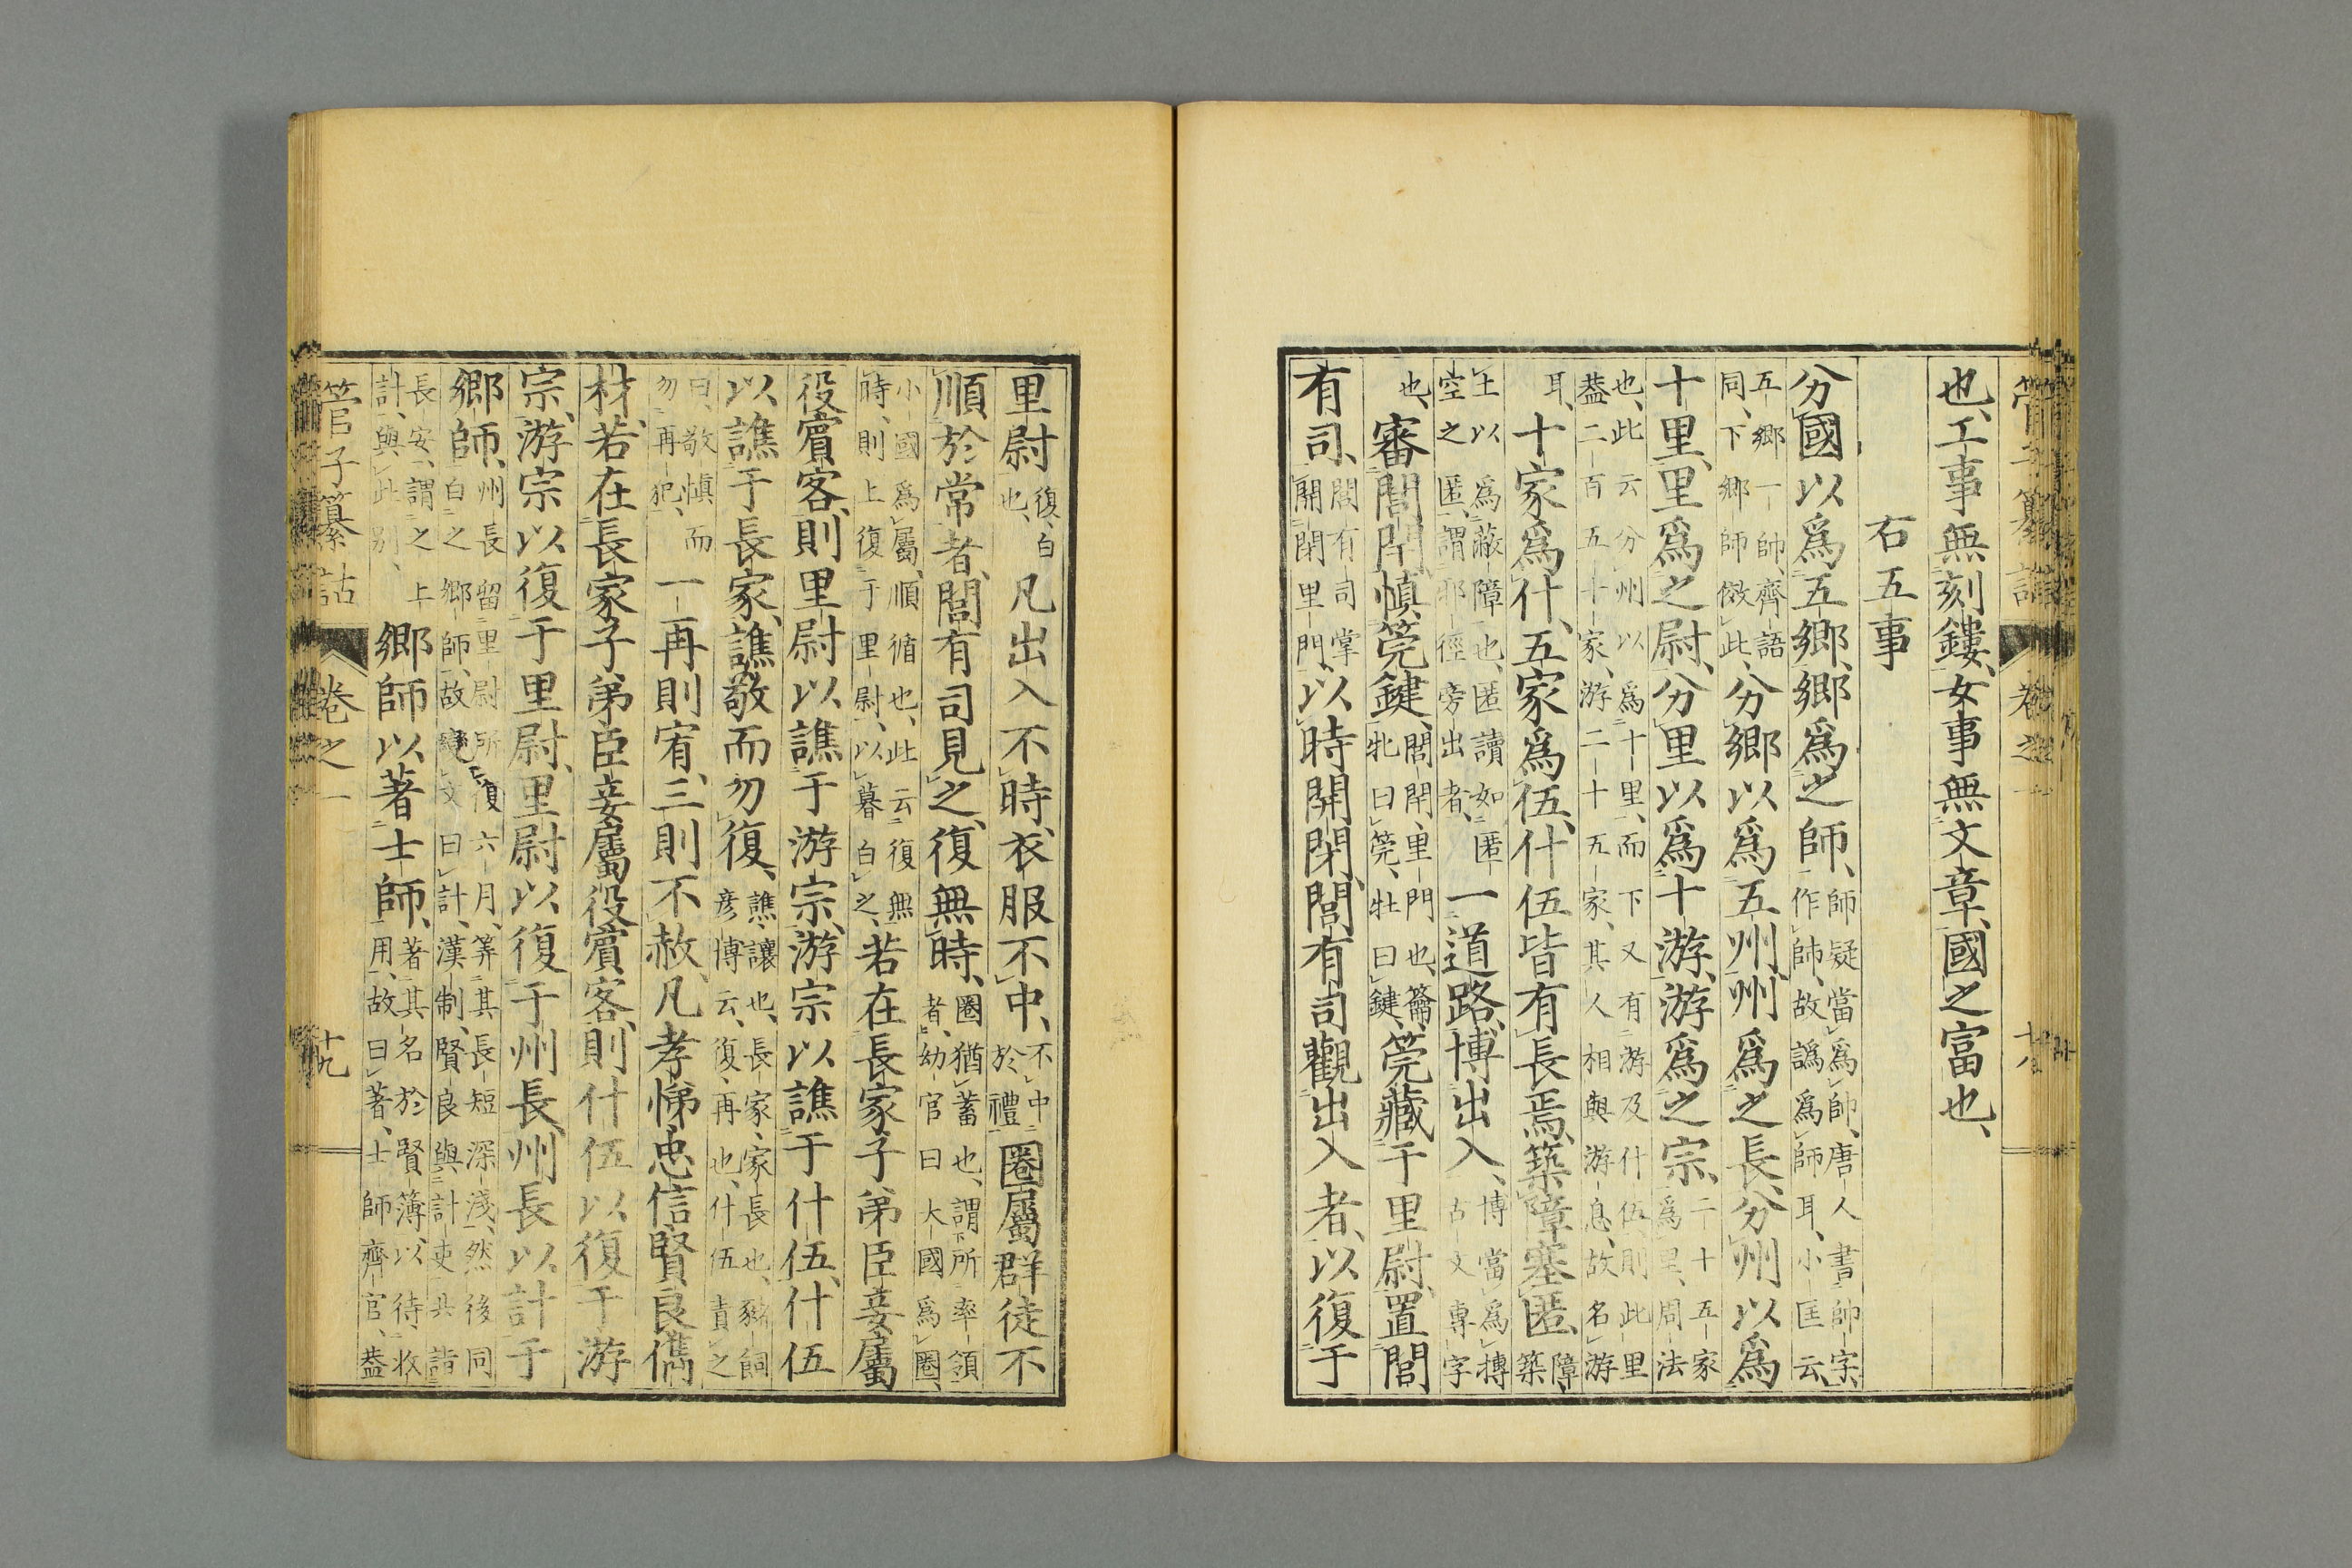 管子纂詁 卷之一 十八
也、工事無刻鏤、女事無文章、國之富也、
右五事
分國以爲五鄉、鄉爲之師、師疑當爲帥、唐人書帥字、作師、故譌爲師耳、小匡云、
五鄉一帥、齊語同、下鄉師倣此、分鄉以爲五州、州爲之長、分州以爲
十里、里爲之尉、分里以爲十游、游爲之宗、二十五家爲里、周法
也、此云分州以爲十里、而下又有游及什伍、則此里蓋二百五十家、游二十五家、其人相與游息、故名游
耳、十家爲什、五家爲伍、什伍皆有長焉、築障塞匿、障、築
土以爲蔽障也、匿讀如慝、空之匿、謂邪徑旁出者、一道路、博出入、博當爲摶、古文專字
也、審閭閈、慎筦鍵、閭閈、里門也、籥、牝曰筦、牡曰鍵、筦藏于里尉、置閭
有司、閭有司掌開閉里門、以時開閉、閭有司觀出入者、以復于
里尉、復、白也、凡出入不時、衣服不中、不中於禮圈屬群徒不
順於常者、閭有司見之、復無時、圈猶蓄也、謂所率領者、幼官曰大國爲圈、
小國爲屬、順循也、此云復無時、則上復于里尉、以暮白之、若在長家子弟臣妾屬
役賓客、則里尉以譙于游宗、游宗以譙于什伍、什伍
以譙于長家、譙敬而勿復、譙、讓也、長家、家長也、豬飼彦博云、復、再也、什伍責之
曰、敬慎而勿再犯、一再則宥、三則不赦、凡孝悌忠信賢良儁
材、若在長家子弟臣妾屬役賓客、則什伍以復于游
宗、游宗以復于里尉、里尉以復于州長、州長以計于
鄉師、州長留里尉所復六月、筭其長短深淺、然後同白之鄉師、故變文曰計、漢制、賢良與計吏共詣
長安、謂之上計、與此別、鄉師以著士師、著其名於賢簿、以待收用、故曰著、士師齊官、蓋
管子纂詁 卷之一 十九